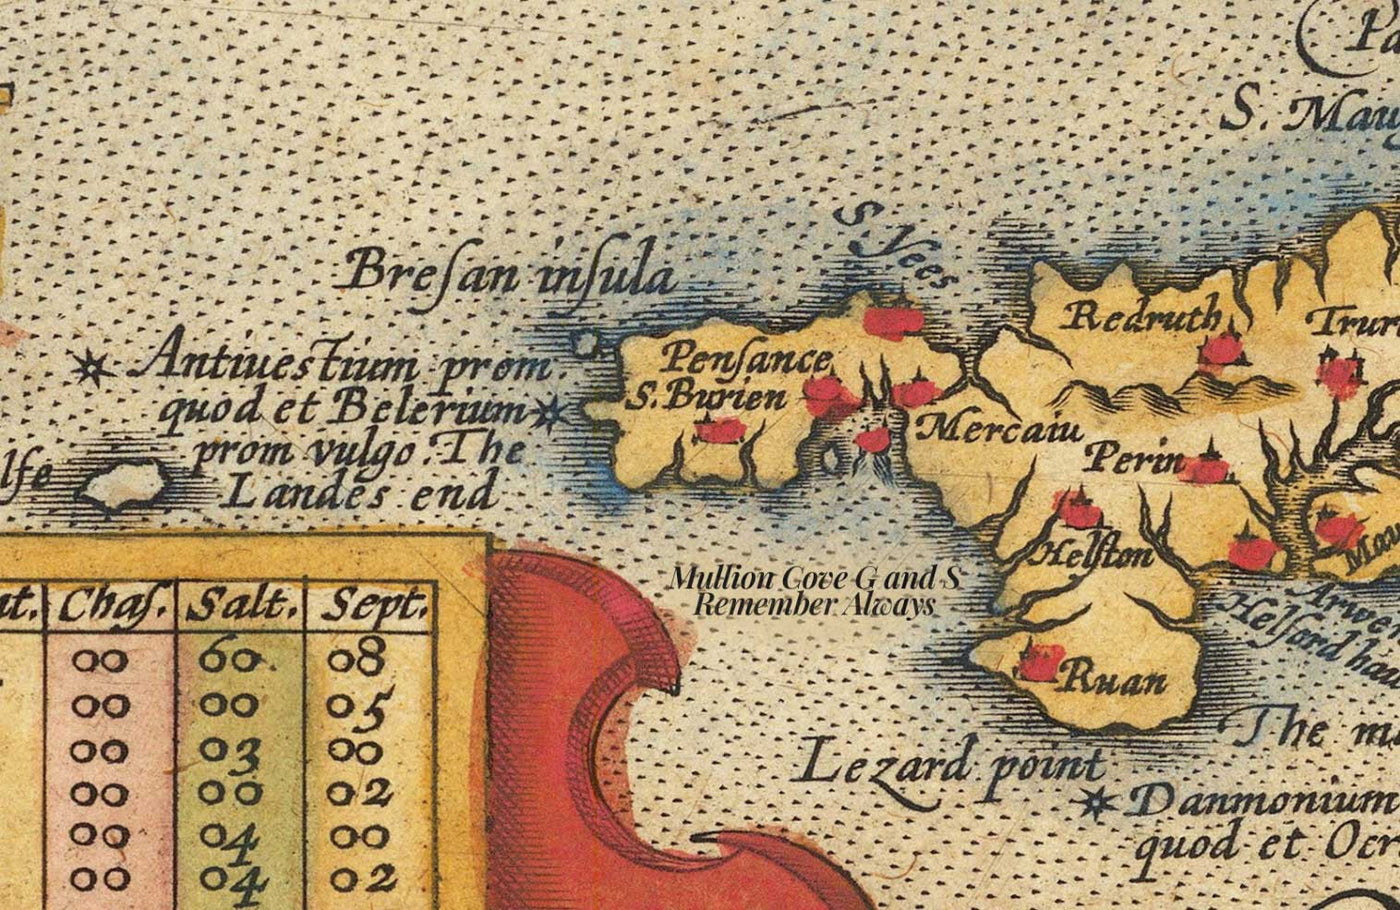 Pa
S. Mau
S. Yees
Breſan inſula
Redruth
Antiuestium prom.
quod et Belerium
prom vulgo. The
Landes end
Penſance
S. Burien
Mercaiu
Perin
Helſton
Mullion Cove G and S
Remember Always
Ruan
Helford ha
Lezard point
The m
Danmonium
quod et Ocr
Chaſ. Salt. Sept.
00 60 08
00 00 05
00 03 00
00 00 02
00 04 00
00 04 02